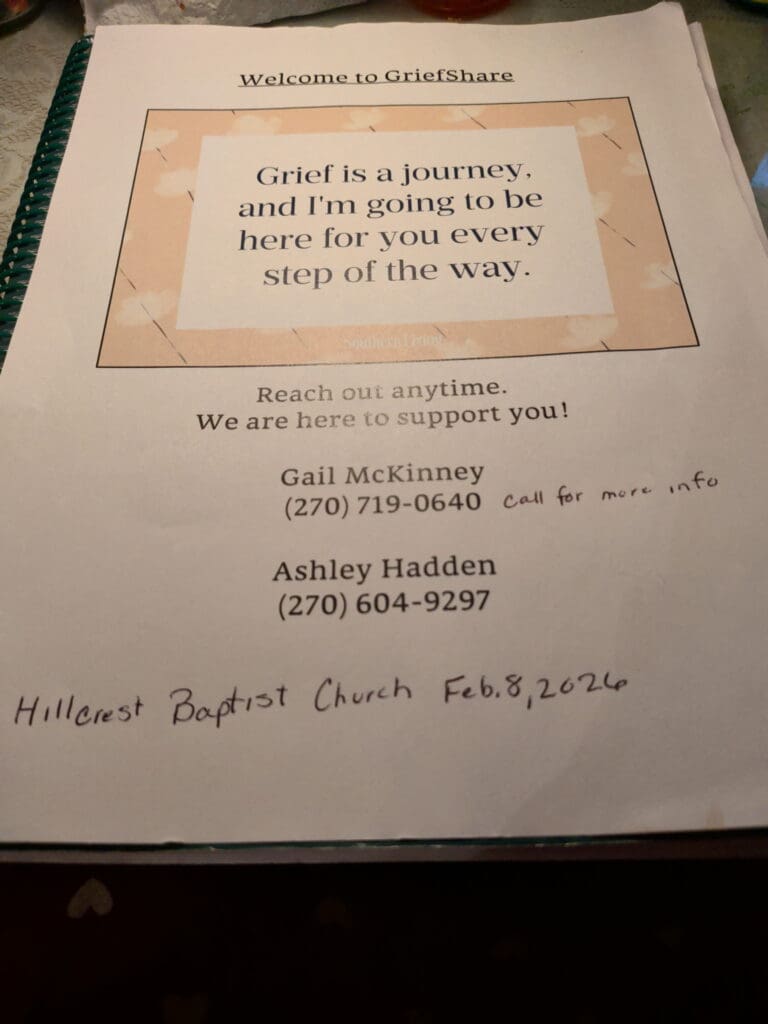 Welcome to GriefShare
Grief is a journey,
and I'm going to be
here for you every
step of the way.
Southern Living
Reach out anytime.
We are here to support you!
Gail McKinney
(270) 719-0640 call for more info
Ashley Hadden
(270) 604-9297
Hillcrest Baptist Church Feb.8,2026